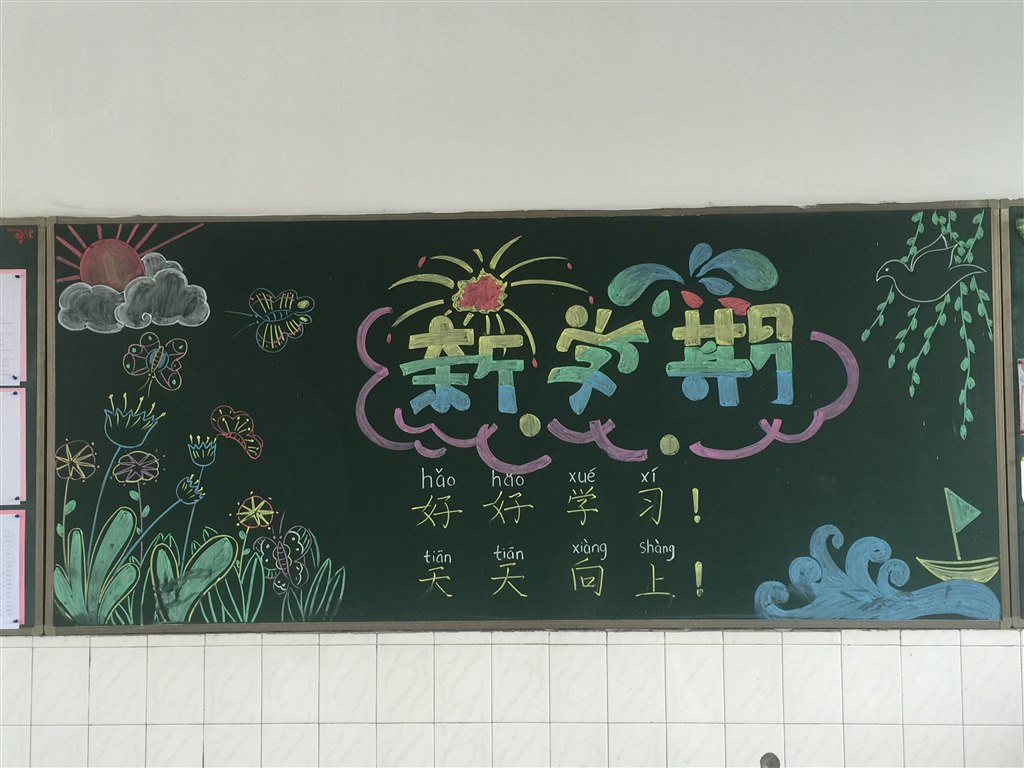 新学期
hǎo hǎo xué xí
好好学习！
tiān tiān xiàng shàng
天天向上！